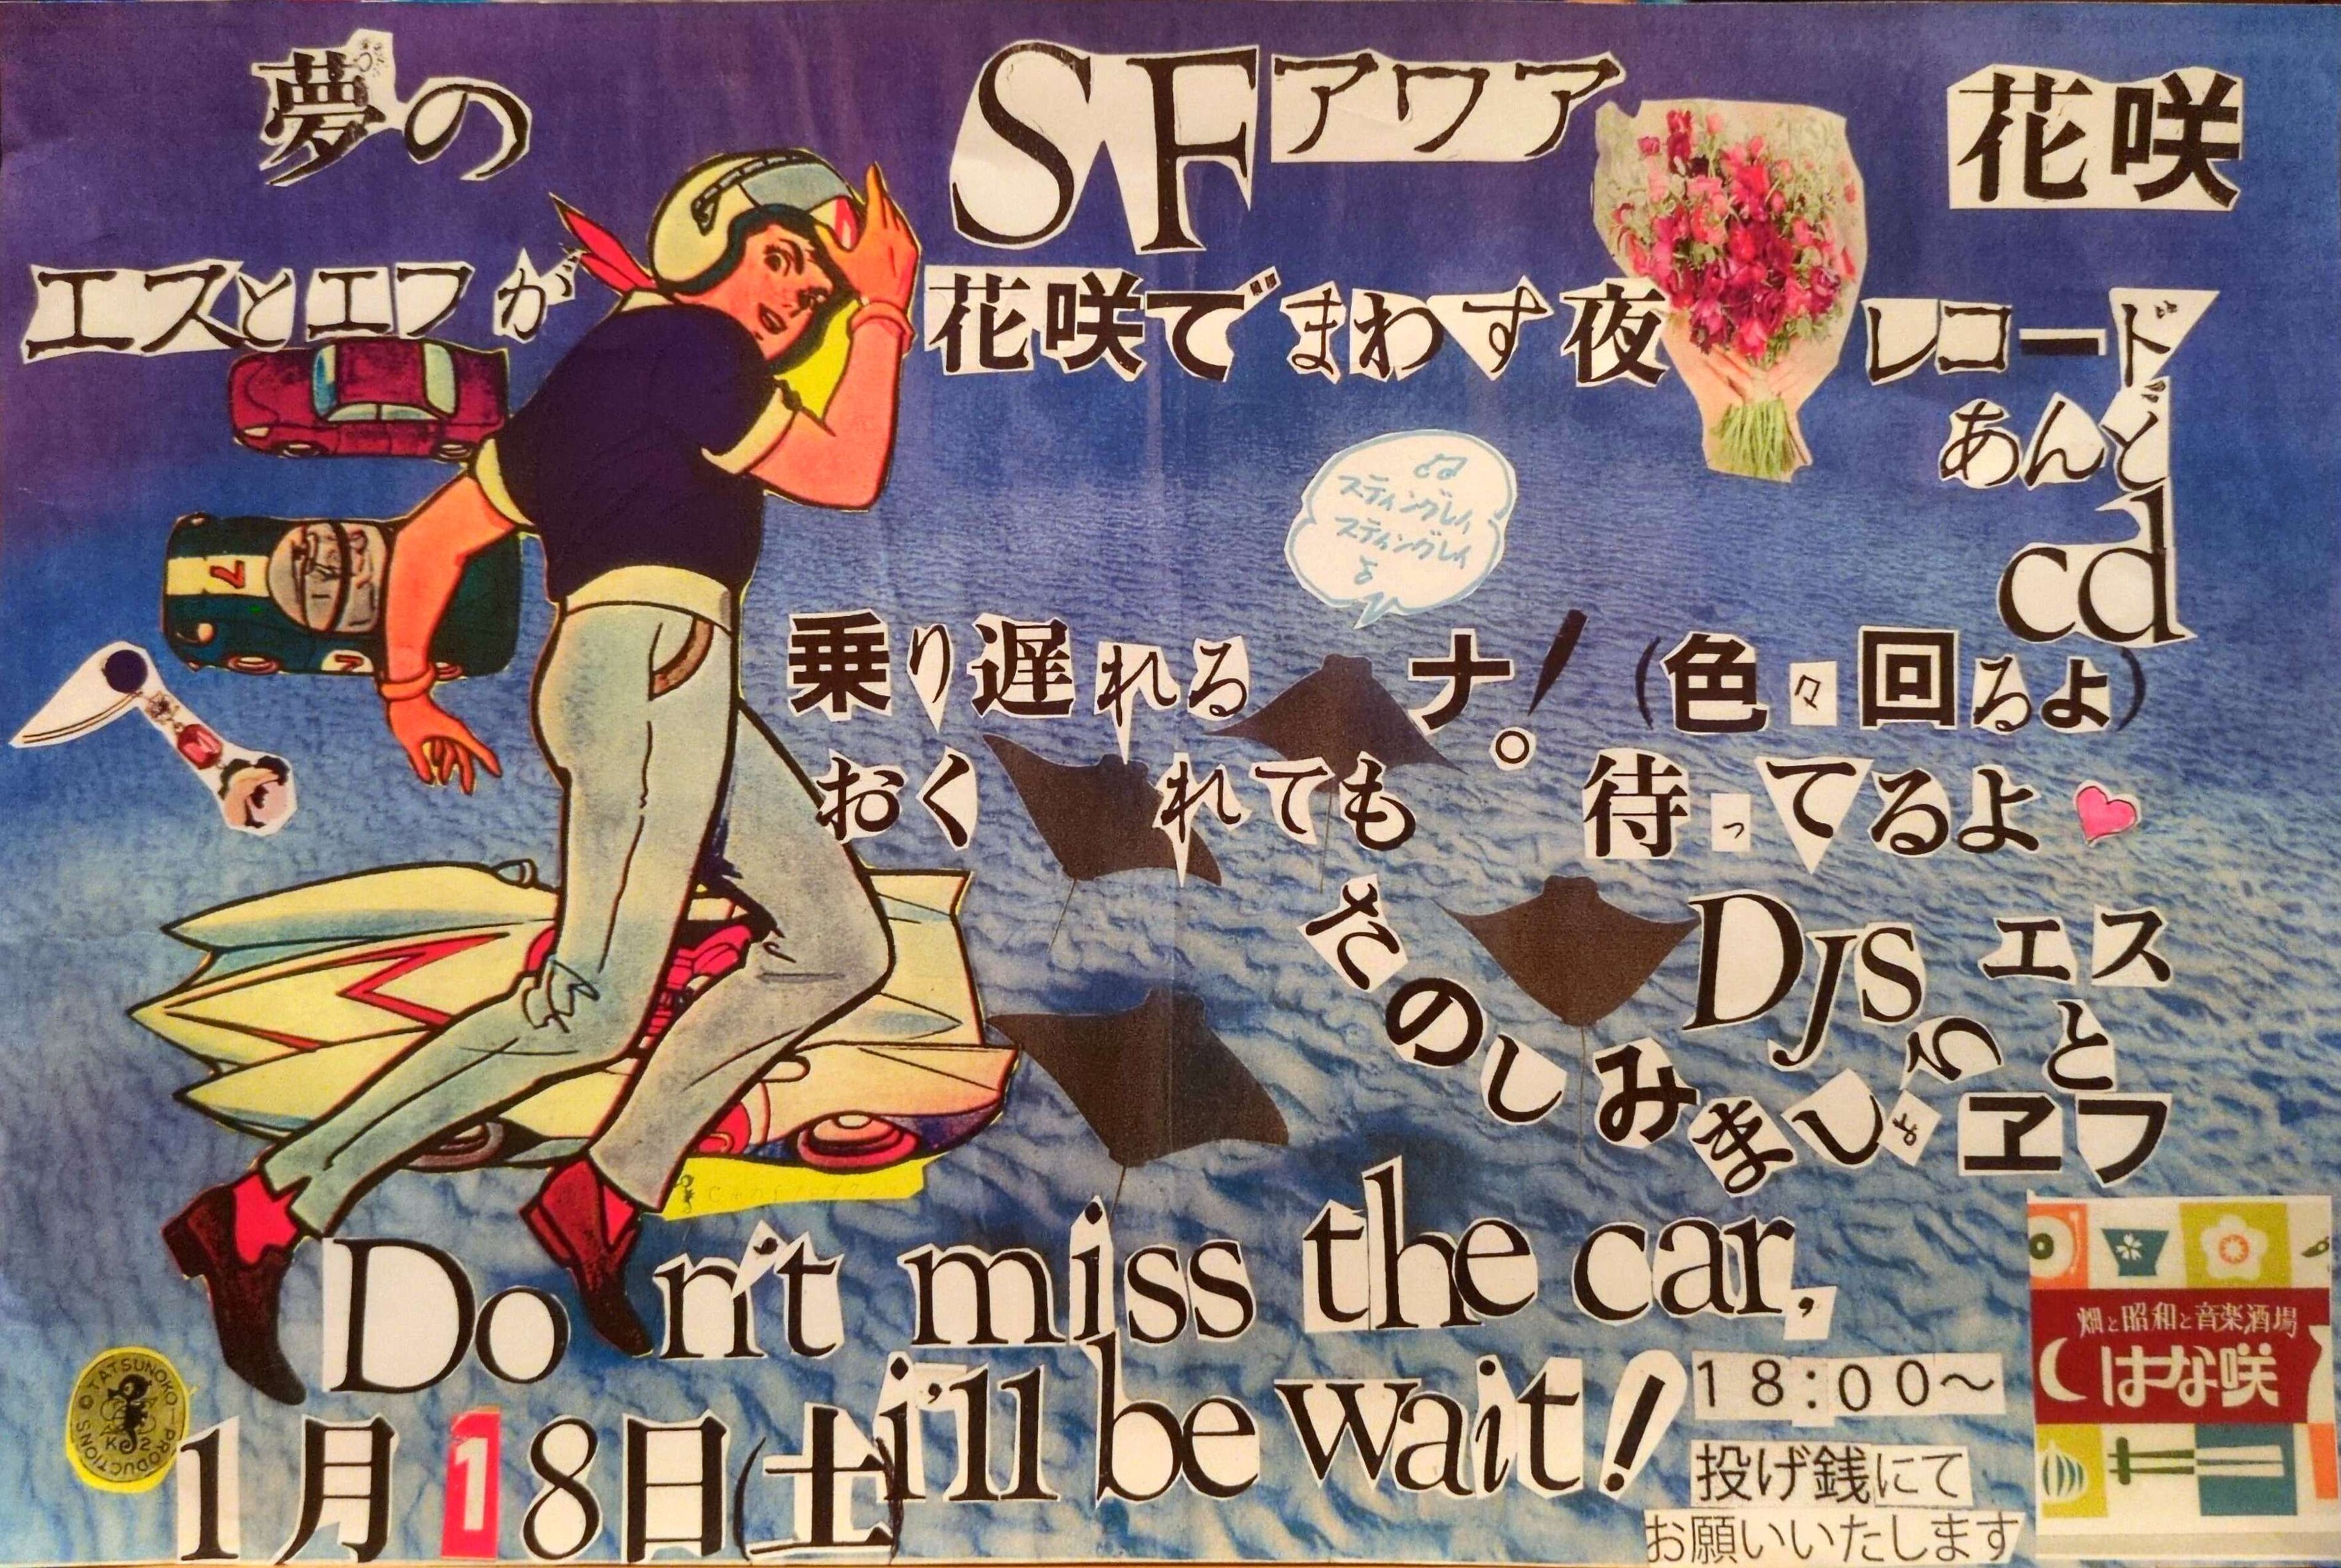 夢の SFアワア 花咲
エスとエフが花咲でまわす夜 レコード
あんど
cd
スティングレイ
スティングレイ
乗り遅れるナ！。(色々回るよ)
おくれても 待ってるよ
たのしみましょう
DJS エス
と
ヱフ
Don't miss the car,
i'll be wait!
1月18日(土)
18:00～
投げ銭にて
お願いいたします
畑と昭和と音楽酒場
はな咲
©TATSUNOKO-PRODUCTIONS
K 2
7